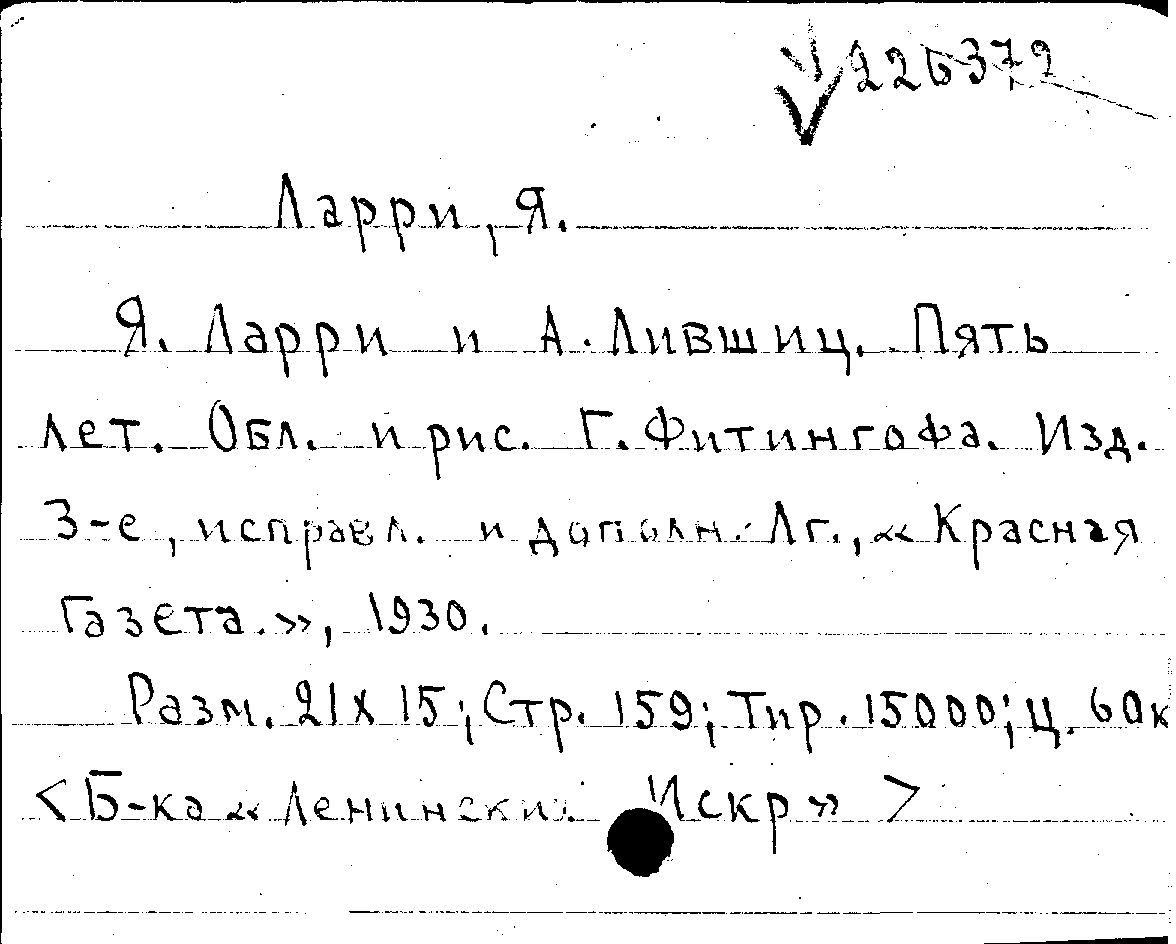 226372
Ларри, Я.
Я. Ларри и А. Лившиц. Пять
лет. Обл. и рис. Г. Фитингофа. Изд.
3-е, исправл. и дополн. Лг., «Красная
Газета.», 1930.
Разм. 21х15; Стр. 159; Тир. 15000; Ц. 60к
<Б-ка «Ленинских Искр» >